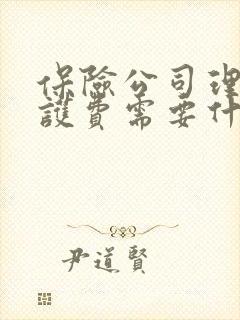 保險公司理
護費需要什
尹道賢